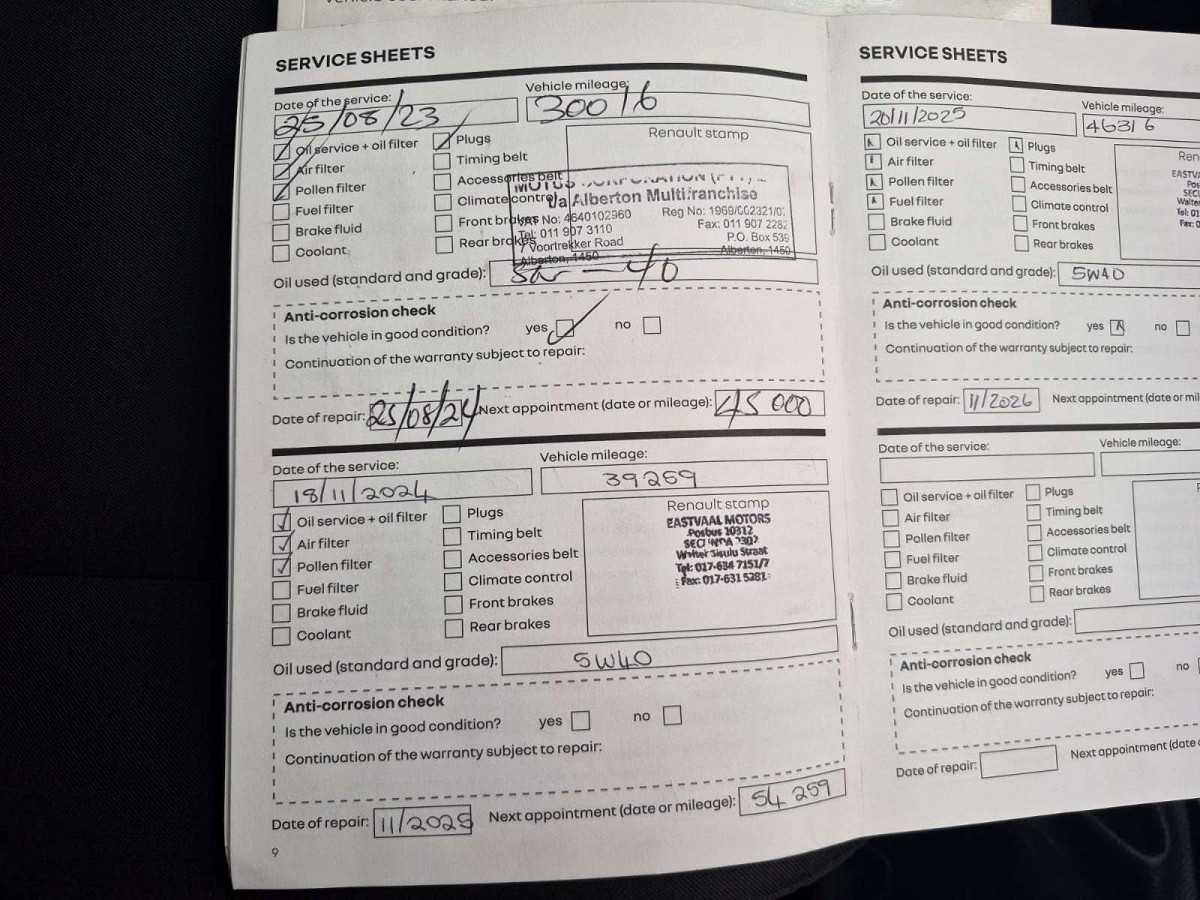 SERVICE SHEETS
Date of the service:
Vehicle mileage:
25/08/23
30016
Oil service + oil filter
Plugs
Air filter
Timing belt
Pollen filter
Accessories belt
Fuel filter
Climate control
Brake fluid
Front brakes
Coolant
Rear brakes
Renault stamp
t/a Alberton Multifranchise
VAT No: 4640102960
Reg No: 1969/002321/07
Tel: 011 907 3110
Fax: 011 907 2282
7 Voortrekker Road
P.O. Box 536
Alberton, 1450
Alberton, 1450
Oil used (standard and grade):
Anti-corrosion check
Is the vehicle in good condition? yes no
Continuation of the warranty subject to repair:
Date of repair: 25/08/24 Next appointment (date or mileage): 45 000
Date of the service:
Vehicle mileage:
18/11/2024
39259
Oil service + oil filter
Plugs
Air filter
Timing belt
Pollen filter
Accessories belt
Fuel filter
Climate control
Brake fluid
Front brakes
Coolant
Rear brakes
Renault stamp
EASTVAAL MOTORS
Posbus 10312
SECUNDA 2302
Walter Sisulu Straat
Tel: 017-634 7151/7
Fax: 017-631 5281
Oil used (standard and grade): 5W40
Anti-corrosion check
Is the vehicle in good condition? yes no
Continuation of the warranty subject to repair:
Date of repair: 11/2025 Next appointment (date or mileage): 54 259
9
SERVICE SHEETS
Date of the service:
Vehicle mileage:
20/11/2025
46316
Oil service + oil filter
Plugs
Air filter
Timing belt
Pollen filter
Accessories belt
Fuel filter
Climate control
Brake fluid
Front brakes
Coolant
Rear brakes
Ren
EASTV
Pos
SECU
Walter
Tel: 01
Fax: 0
Oil used (standard and grade): 5W40
Anti-corrosion check
Is the vehicle in good condition? yes no
Continuation of the warranty subject to repair:
Date of repair: 11/2026 Next appointment (date or mil
Date of the service:
Vehicle mileage:
Oil service + oil filter
Plugs
Air filter
Timing belt
Pollen filter
Accessories belt
Fuel filter
Climate control
Brake fluid
Front brakes
Coolant
Rear brakes
Oil used (standard and grade):
Anti-corrosion check
Is the vehicle in good condition? yes no
Continuation of the warranty subject to repair:
Date of repair: Next appointment (date o